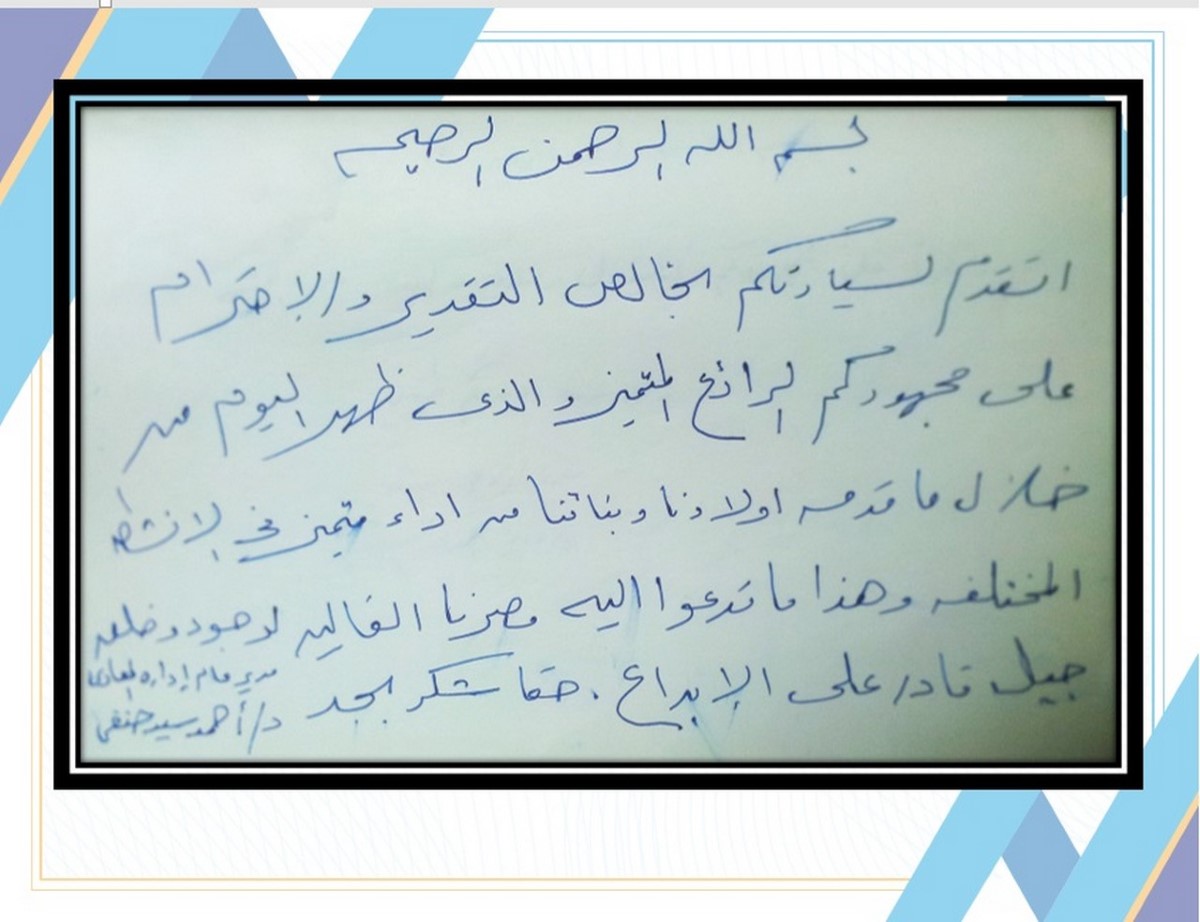 بسم الله الرحمن الرحيم
اتقدم لسيادتكم بخالص التقدير والإحترام
على مجهودكم الرائع المتميز والذى ظهر اليوم من
خلال ما قدمه اولادنا وبناتنا من اداء متميز فى الانشطه
المختلفه وهذا ما تدعوا اليه مصرنا الغاليه لوجود وخلق
جيل قادر على الإبداع . حقا شكر بجد
مدير عام إداره
د/ أحمد سيد حنفى